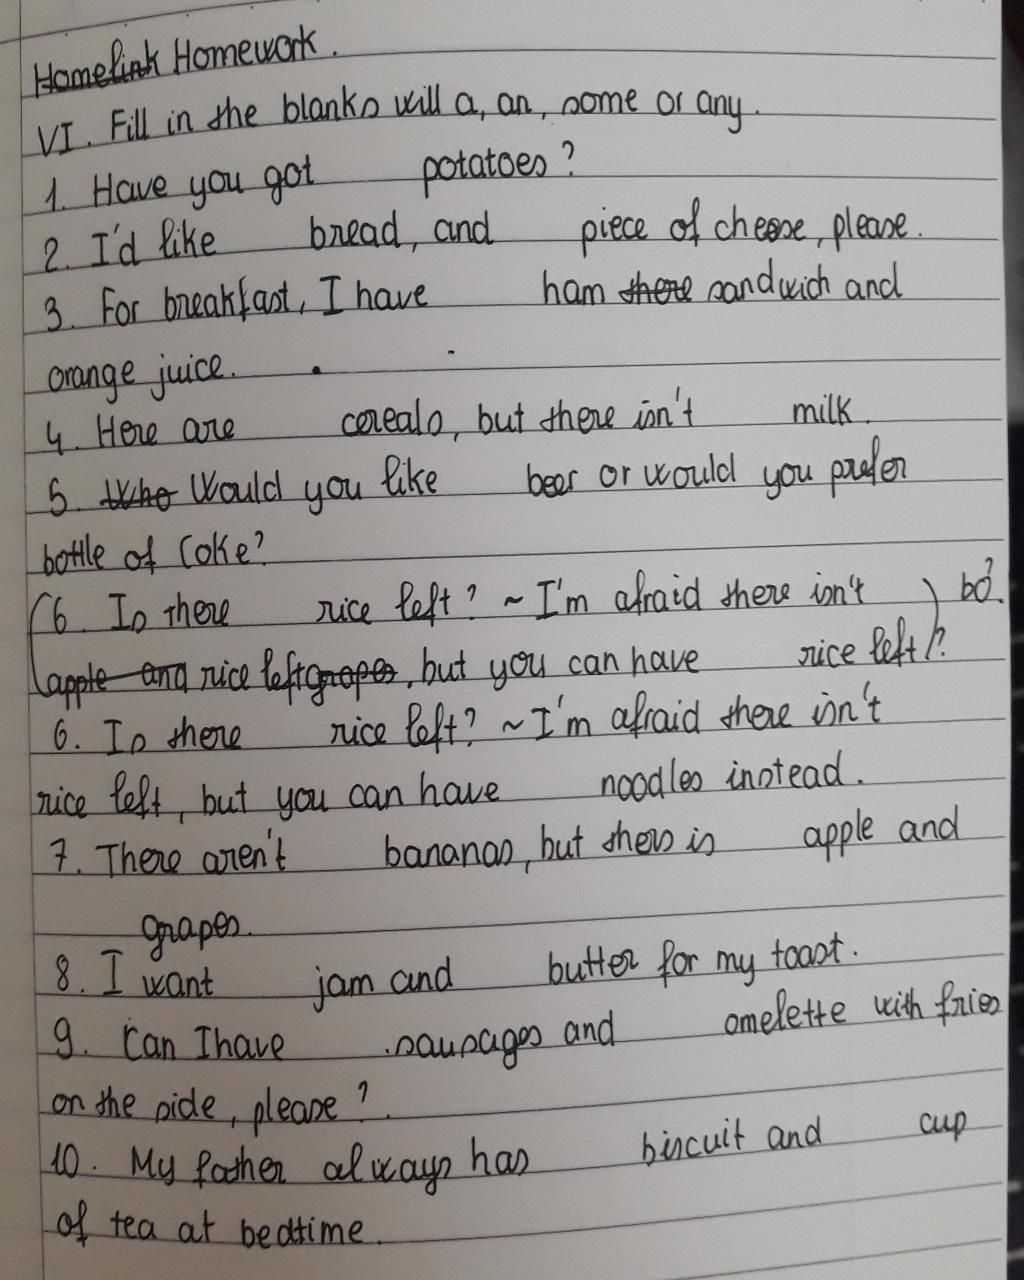 Homelink Homework.
VI. Fill in the blanks will a, an, some or any.
1. Have you got potatoes?
2. I'd like bread, and piece of cheese, please.
3. For breakfast, I have ham there sandwich and
orange juice.
4. Here are cereals, but there isn't milk.
5. Who Would you like beer or would you prefer
bottle of Coke?
(6. Is there rice left? ~ I'm afraid there isn't ) bỏ.
apple and rice left grapes, but you can have rice left)?
6. Is there rice left? ~ I'm afraid there isn't
rice left, but you can have noodles instead.
7. There aren't bananas, but there is apple and
grapes.
8. I want jam and butter for my toast.
9. Can I have sausages and omelette with fries
on the side, please?
10. My father always has biscuit and cup
of tea at bedtime.